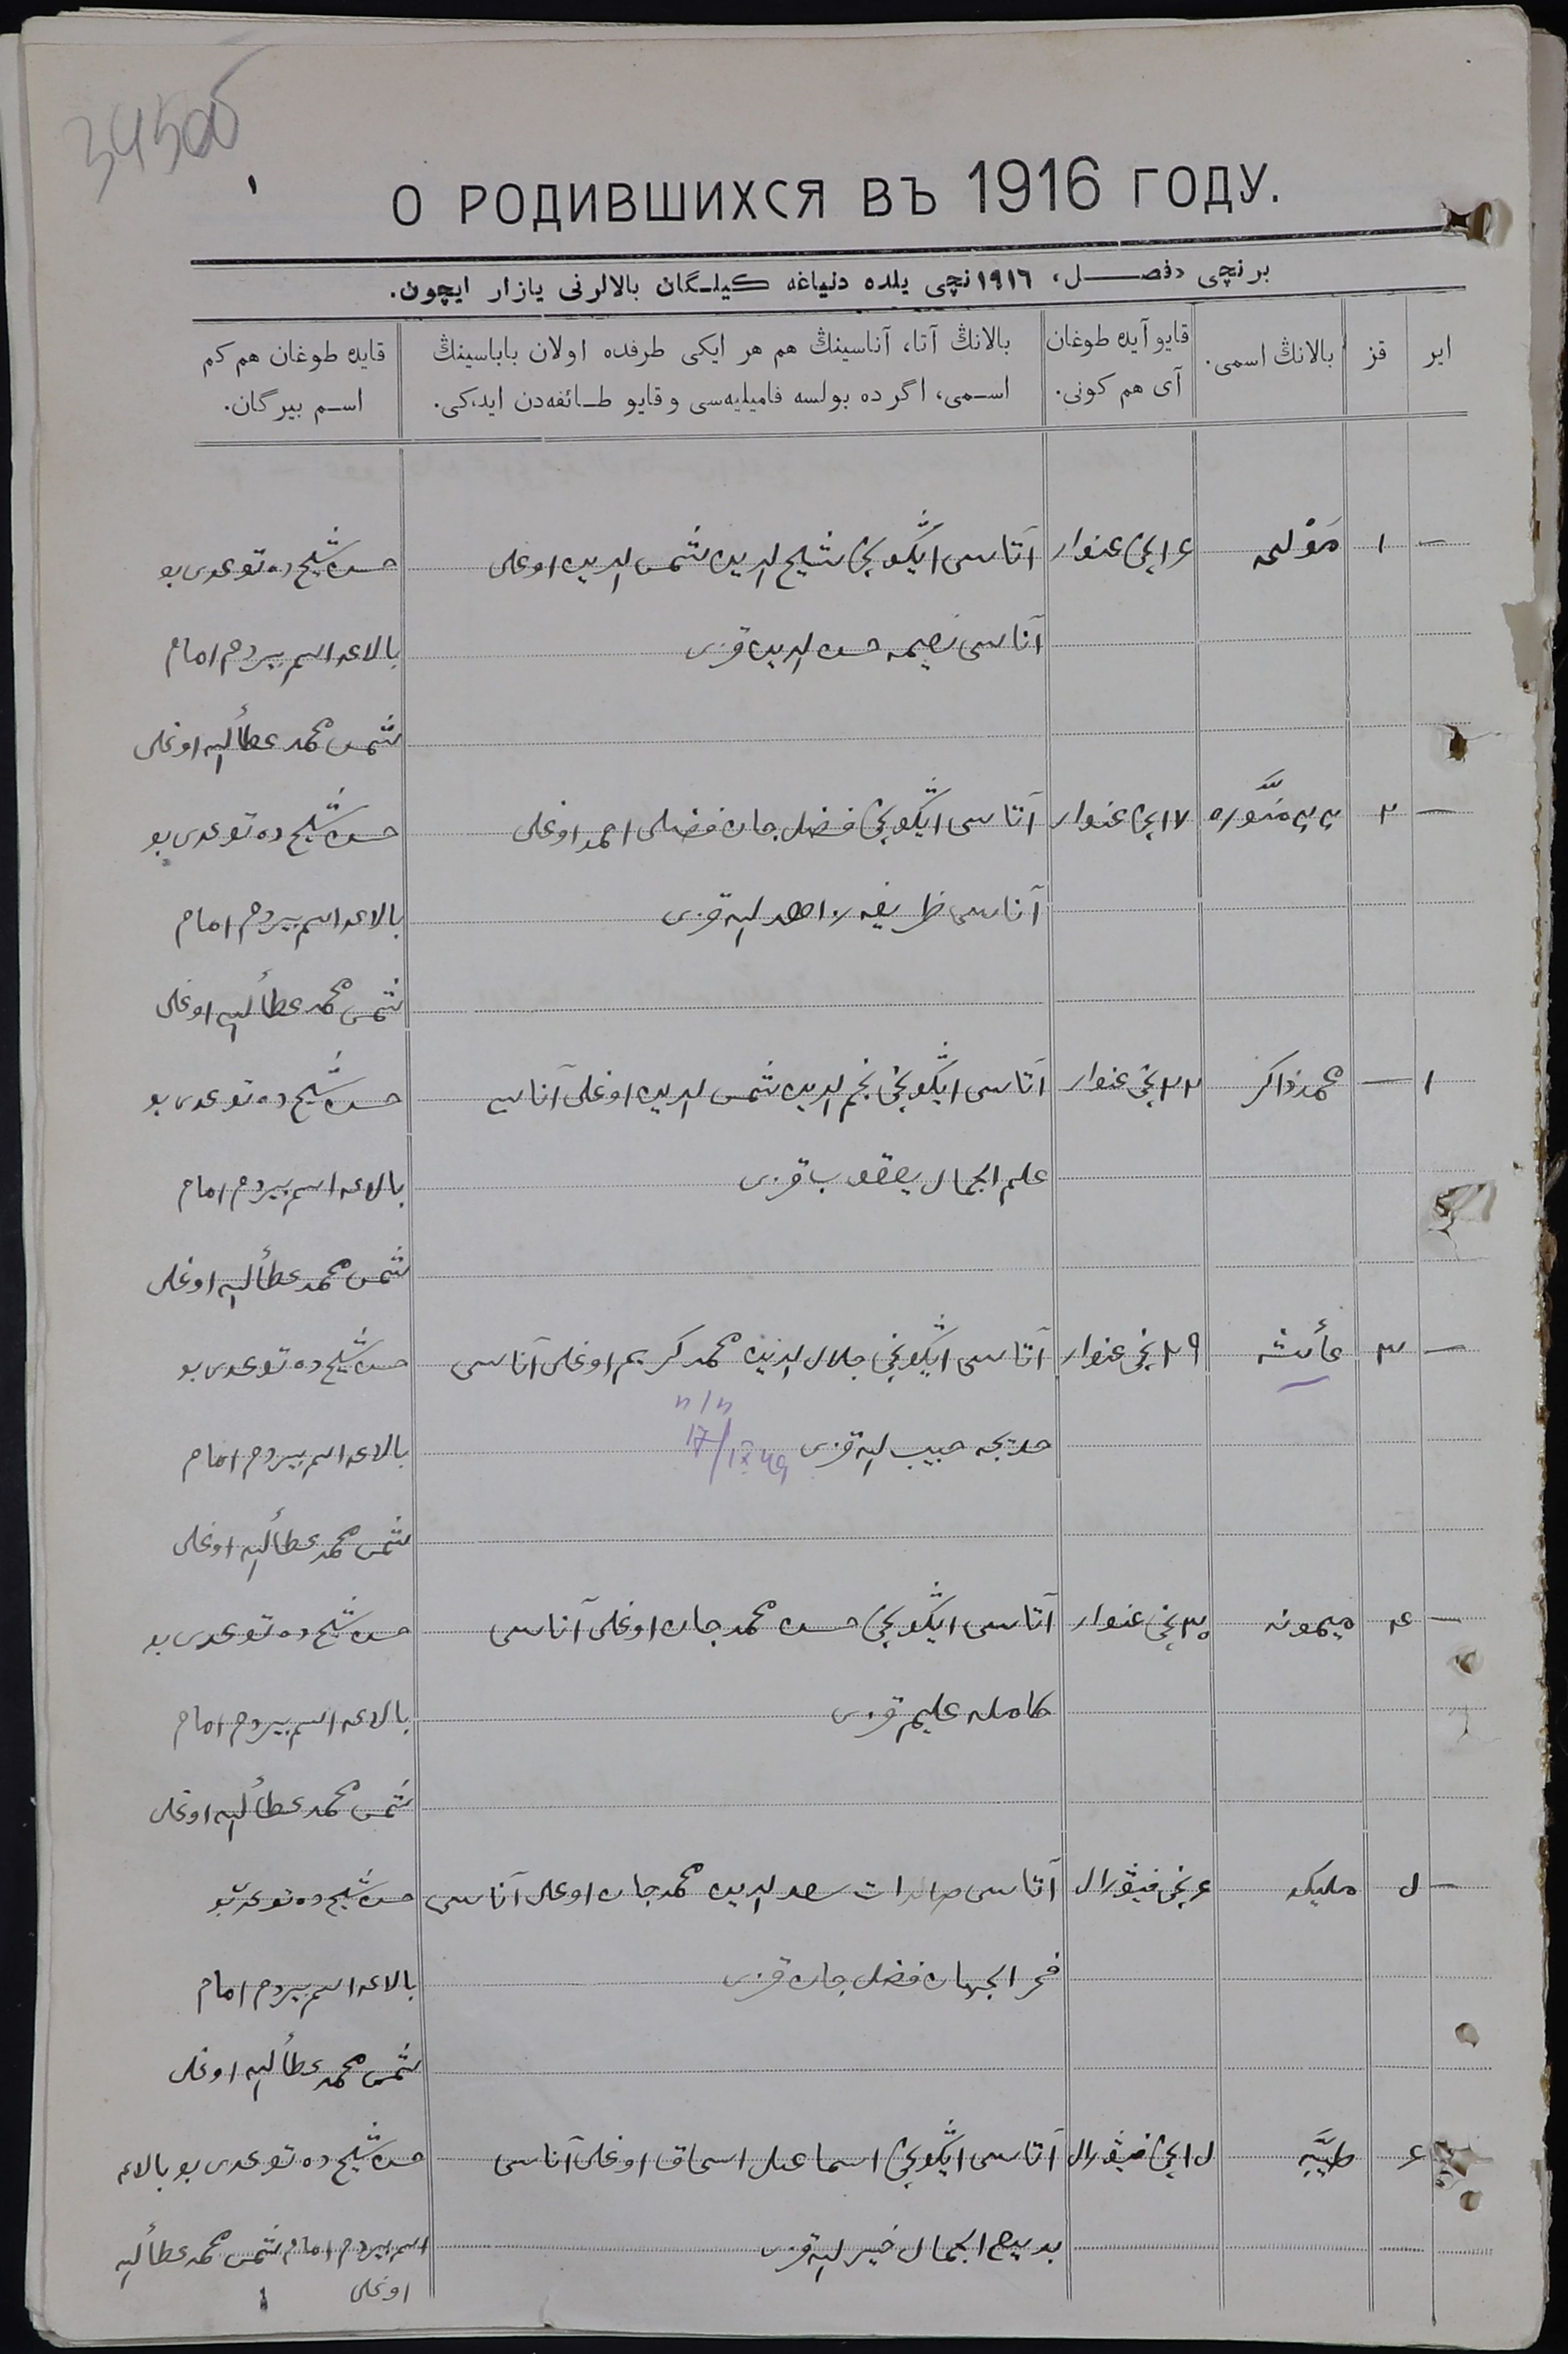 345об
О РОДИВШИХСЯ ВЪ 1916 ГОДУ.
برنچی «فصل» ١٩١٦نچی یلده دنیاغه کیلـگان بالالرنی یازار ایچون.
ایر
قز
بالانڭ اسمی.
قایو آیده طوغان
آی هم کونی.
بالانڭ آتا، آناسینڭ هم هر ایکی طرفده اولان باباسینڭ
اسـمی، اگر ده بولسه فامیلیه‌سی و قایو طـائفه‌دن ایدکی.
قایده طوغان هم کم
اسـم بیرگان.
— ١ ١٦نچی غنوار آتاسی ایگونچی شیخ الدین شمس الدین اوغلی حسن شیخ ده توغدی بو
آناسی نعیمه حسن الدین قزی بالاغه اسم بیردم امام
شمس محمد عطأالله اوغلی
— ٢ منوره ١٧نچی غنوار آتاسی ایگونچی فضل جان فضلی احمد اوغلی حسن شیخ ده توغدی بو
آناسی ظریفه الله قزی بالاغه اسم بیردم امام
شمس محمد عطأالله اوغلی
١ — محمد ذاکر ٢٢نچی غنوار آتاسی ایگونچی نجم الدین شمس الدین اوغلی آناسی حسن شیخ ده توغدی بو
علم الجمال یعقوب قزی بالاغه اسم بیردم امام
شمس محمد عطأالله اوغلی
— ٣ عائشه ٢٩نچی غنوار آتاسی ایگونچی جلال الدین محمد کریم اوغلی آناسی حسن شیخ ده توغدی بو
خدیجه حبیب الله قزی п/п 17/IX 49 بالاغه اسم بیردم امام
شمس محمد عطأالله اوغلی
— ۴ میمونه ٣٠نچی غنوار آتاسی ایگونچی حسن محمد جان اوغلی آناسی حسن شیخ ده توغدی بو
کامله علیم قزی بالاغه اسم بیردم امام
شمس محمد عطأالله اوغلی
— ۵ ملیکه ۶نچی فیورال آتاسی سعد الدین محمد جان اوغلی آناسی حسن شیخ ده توغدی بو
فخر الجهان فضل جان قزی بالاغه اسم بیردم امام
شمس محمد عطأالله اوغلی
۶ طیبه ١۵نچی فیورال آتاسی ایگونچی اسماعیل اسحاق اوغلی آناسی حسن شیخ ده توغدی بو بالاغه
بدیع الجمال خیر الله قزی اسم بیردم امام شمس محمد عطأالله
اوغلی